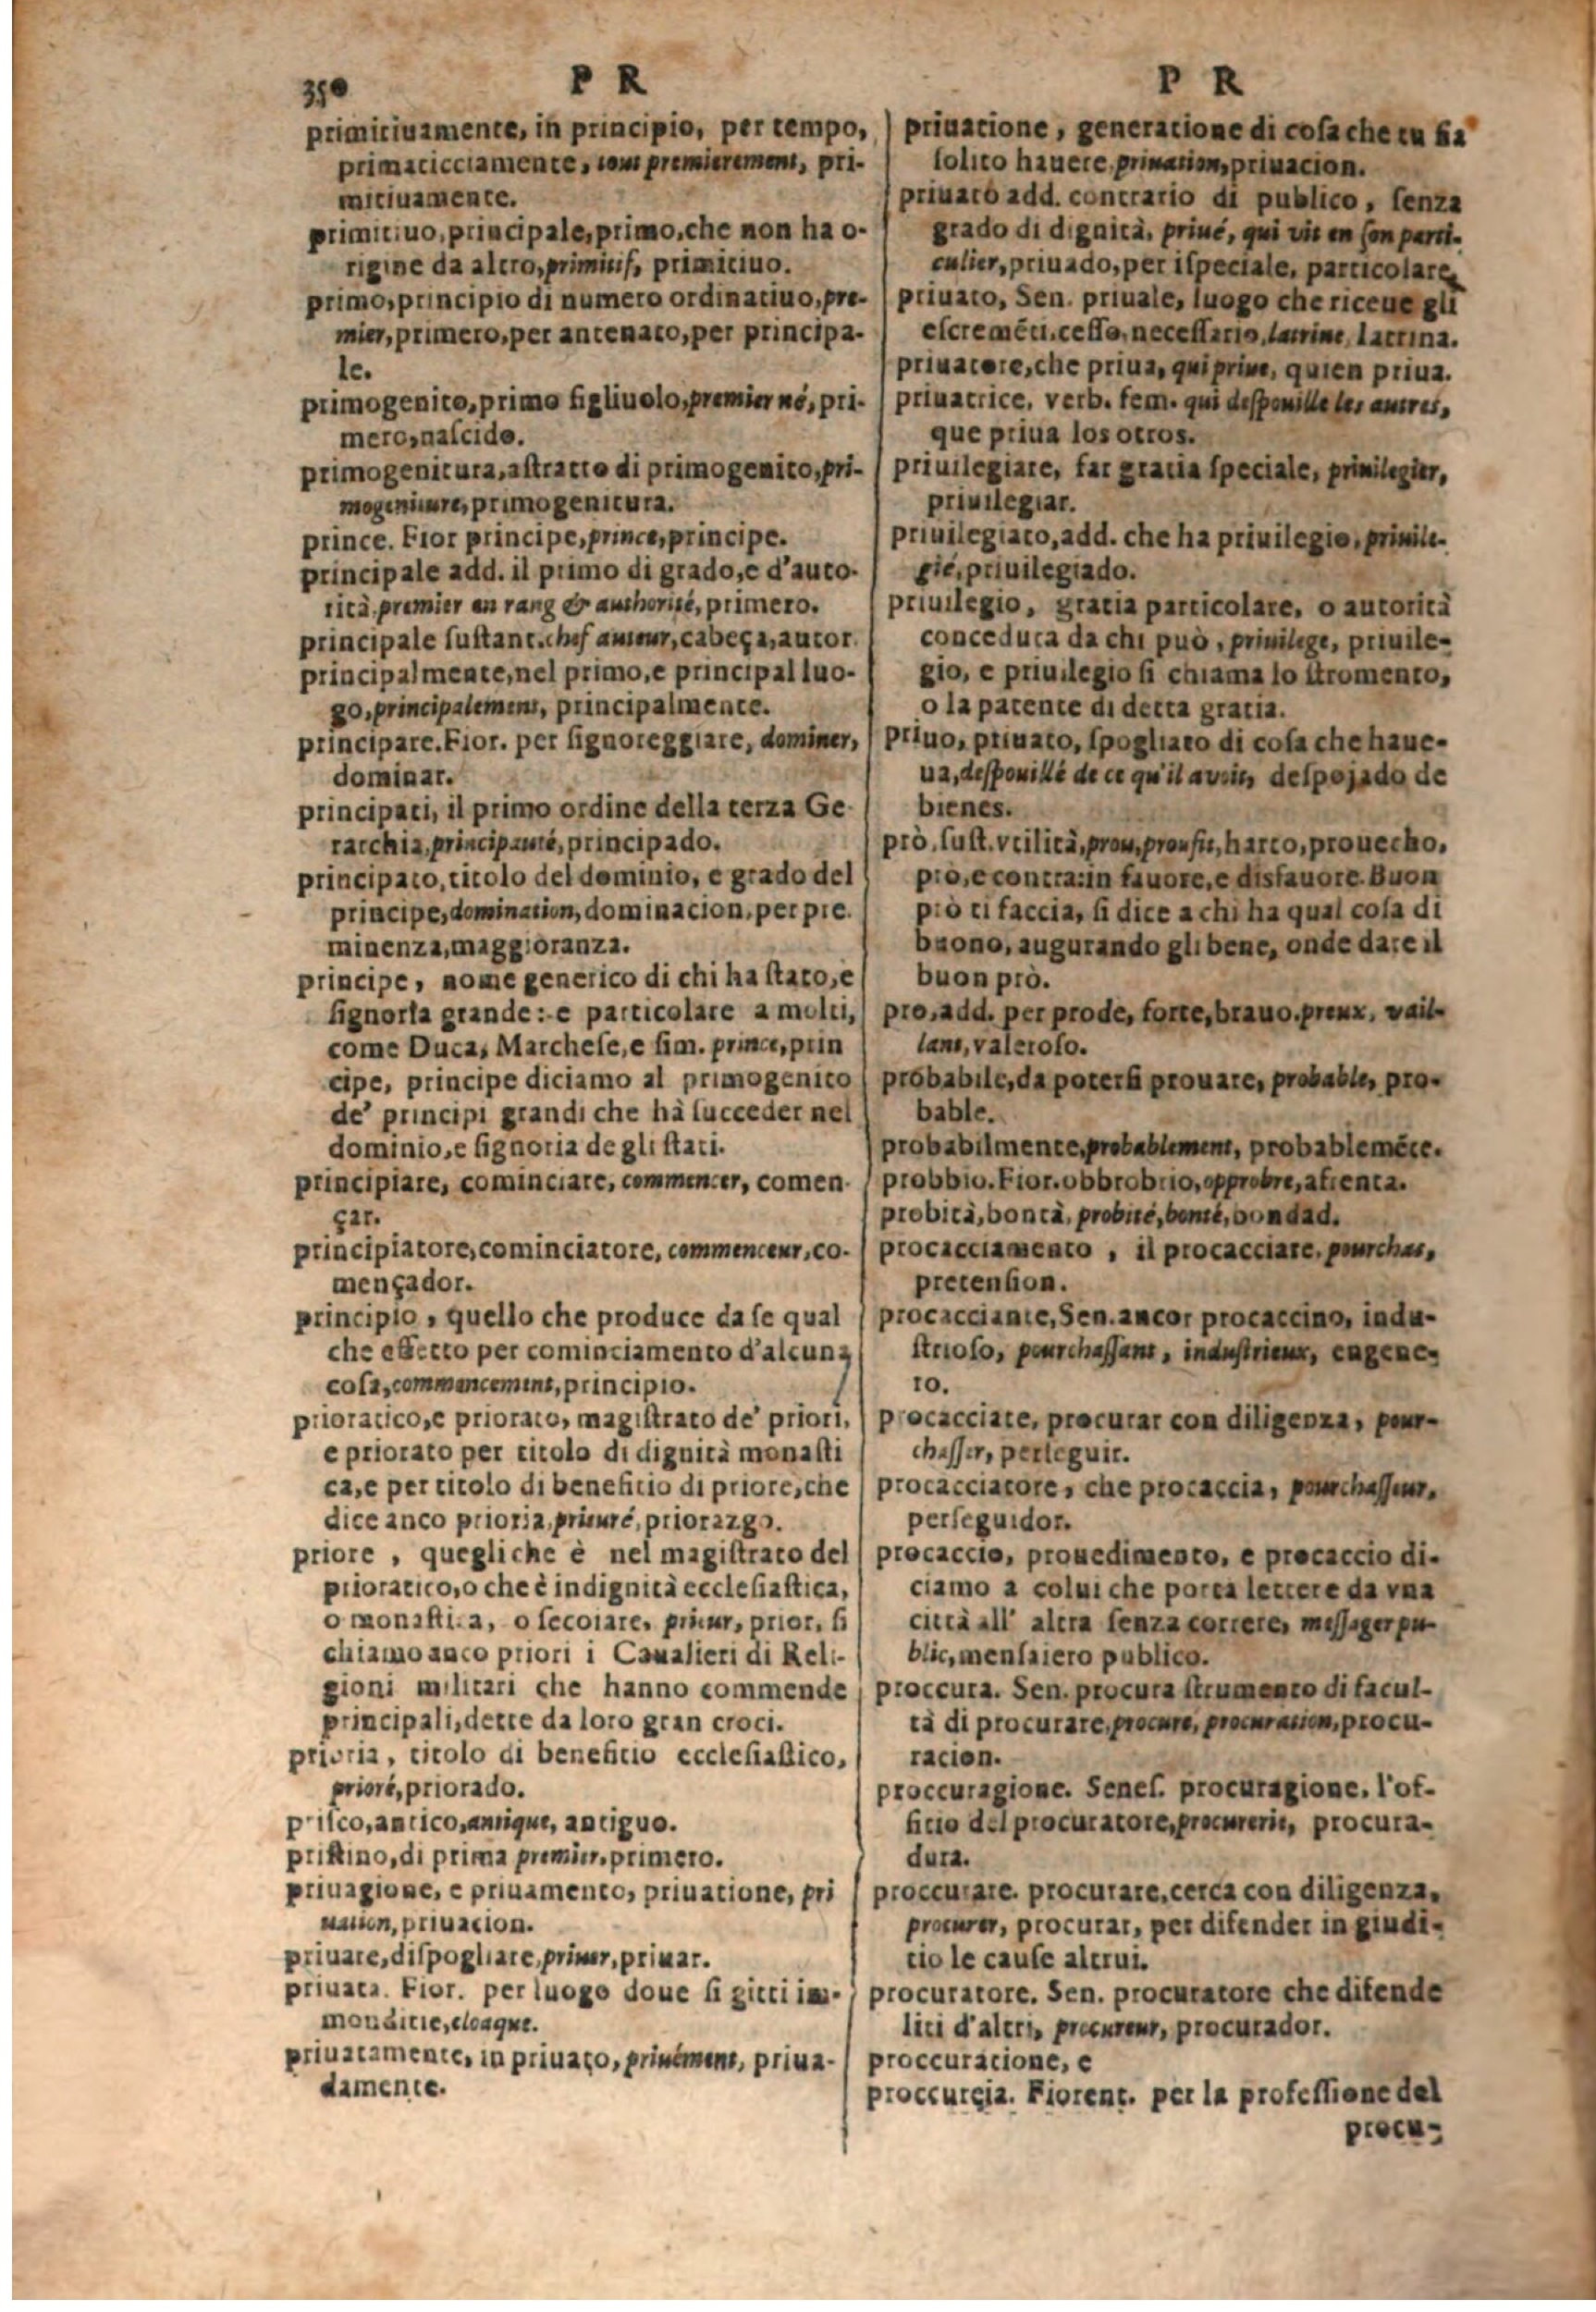 350
P R
primitiuamente, in principio, per tempo,
primaticciamente, tout premierement, pri-
mitiuamente.
primitiuo, principale, primo, che non ha o-
rigine da altro, primitif, primitiuo.
primo, principio di numero ordinatiuo, pre-
mier, primero, per antenato, per principa-
le.
primogenito, primo figliuolo, premier né, pri-
mero, naſcido.
primogenitura, aſtratto di primogenito, pri-
mogeniture, primogenitura.
prince. Fior principe, prince, principe.
principale add. il primo di grado, e d'auto-
rità, premier en rang & authorité, primero.
principale ſuſtant. chef auteur, cabeça, autor.
principalmente, nel primo, e principal luo-
go, principalement, principalmente.
principare. Fior. per ſignoreggiare, dominer,
dominar.
principati, il primo ordine della terza Ge
rarchia, principauté, principado.
principato, titolo del dominio, e grado del
principe, domination, dominacion, per pre.
minenza, maggioranza.
principe, nome generico di chi ha ſtato, e
ſignoria grande: e particolare a molti,
come Duca, Marcheſe, e ſim. prince, prin
cipe, principe diciamo al primogenito
de' principi grandi che hà ſucceder nel
dominio, e ſignoria degli ſtati.
principiare, cominciare, commencer, comen
çar.
principiatore, cominciatore, commenceur, co-
mençador.
principio, quello che produce da ſe qual
che effetto per cominciamento d'alcuna
coſa, commancement, principio.
prioratico, e priorato, magiſtrato de' priori,
e priorato per titolo di dignità monaſti
ca, e per titolo di beneficio di priore, che
dice anco prioria, prieuré, priorazgo.
priore, quegli che è nel magiſtrato del
prioratico, o che è in dignità eccleſiaſtica,
o monaſtica, o ſecolare, prieur, prior, ſi
chiamo anco priori i Caualieri di Reli-
gioni militari che hanno commende
principali, dette da loro gran croci.
prioria, titolo di beneficio eccleſiaſtico,
prioré, priorado.
priſco, antico, antique, antiguo.
priſtino, di prima premier, primero.
priuagione, e priuamento, priuatione, pri
uation, priuacion.
priuare, diſpogliare, priuer, priuar.
priuata. Fior. per luogo doue ſi gitti im-
monditie, cloaque.
priuatamente, in priuato, priuément, priua-
damente.
P R
priuatione, generatione di coſa che tu ſia
ſolito hauere, priuation, priuacion.
priuato add. contrario di publico, ſenza
grado di dignità, priué, qui vit en ſon parti-
culier, priuado, per iſpeciale, particolare,
priuato, Sen. priuale, luogo che riceue gli
eſcremẽti. ceſſo, neceſſario, latrine, latrina.
priuatore, che priua, qui priue, quien priua.
priuatrice, verb. fem. qui deſpouille les autres,
que priua los otros.
priuilegiare, far gratia ſpeciale, priuilegier,
priuilegiar.
priuilegiato, add. che ha priuilegio, priuile-
gié, priuilegiado.
priuilegio, gratia particolare, o autorità
conceduta da chi può, priuilege, priuile-
gio, e priuilegio ſi chiama lo ſtromento,
o la patente di detta gratia.
priuo, priuato, ſpogliato di coſa che haue-
ua, deſpouillé de ce qu'il avoit, deſpojado de
bienes.
prò, ſuſt. vtilità, prou, proufit, harto, prouecho,
prò, e contra: in fauore, e disfauore. Buon
prò ti faccia, ſi dice a chi ha qual coſa di
buono, augurando gli bene, onde dare il
buon prò.
pro, add. per prode, forte, brauo. preux, vail-
lant, valeroſo.
probabile, da poterſi prouare, probable, pro-
bable.
probabilmente, probablement, probablemẽte.
probbio. Fior. obbrobrio, opprobre, afrenta.
probità, bontà, probité, bonté, bondad.
procacciamento, il procacciare, pourchas,
pretenſion.
procacciante, Sen. ancor procaccino, indu-
ſtrioſo, pourchaſſant, induſtrieux, engene-
ro.
procacciate, procurar con diligenza, pour-
chaſſer, perſeguir.
procacciatore, che procaccia, pourchaſſeur,
perſeguidor.
procaccio, prouedimento, e procaccio di-
ciamo a colui che porta lettere da vna
città all' altra ſenza correre, meſſager pu-
blic, menſaiero publico.
proccura. Sen. procura ſtrumento di facul-
tà di procurare, procure, procuration, procu-
racion.
proccuragione. Seneſ. procuragione, l'of-
ficio del procuratore, procurerie, procura-
dura.
proccurare. procurare, cerca con diligenza,
procurer, procurar, per difender in giudi-
tio le cauſe altrui.
procuratore. Sen. procuratore che difende
liti d'altri, procureur, procurador.
proccuratione, e
proccureia. Fiorent. per la profeſſione del
procu-